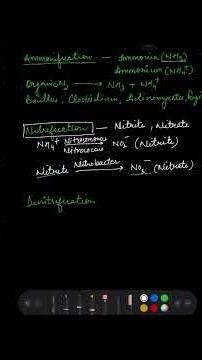 Ammonification — Ammonia (NH3)
Ammonium (NH4+)
Organic N2 → NH3 + NH4+
Bacillus, Clostridium, Actinomycetes,
Nitrification — Nitrite, Nitrate
NH4+ Nitrosomonas Nitrococcus → NO2- (Nitrite)
Nitrite Nitrobacter → NO3- (Nitrate)
Denitrification